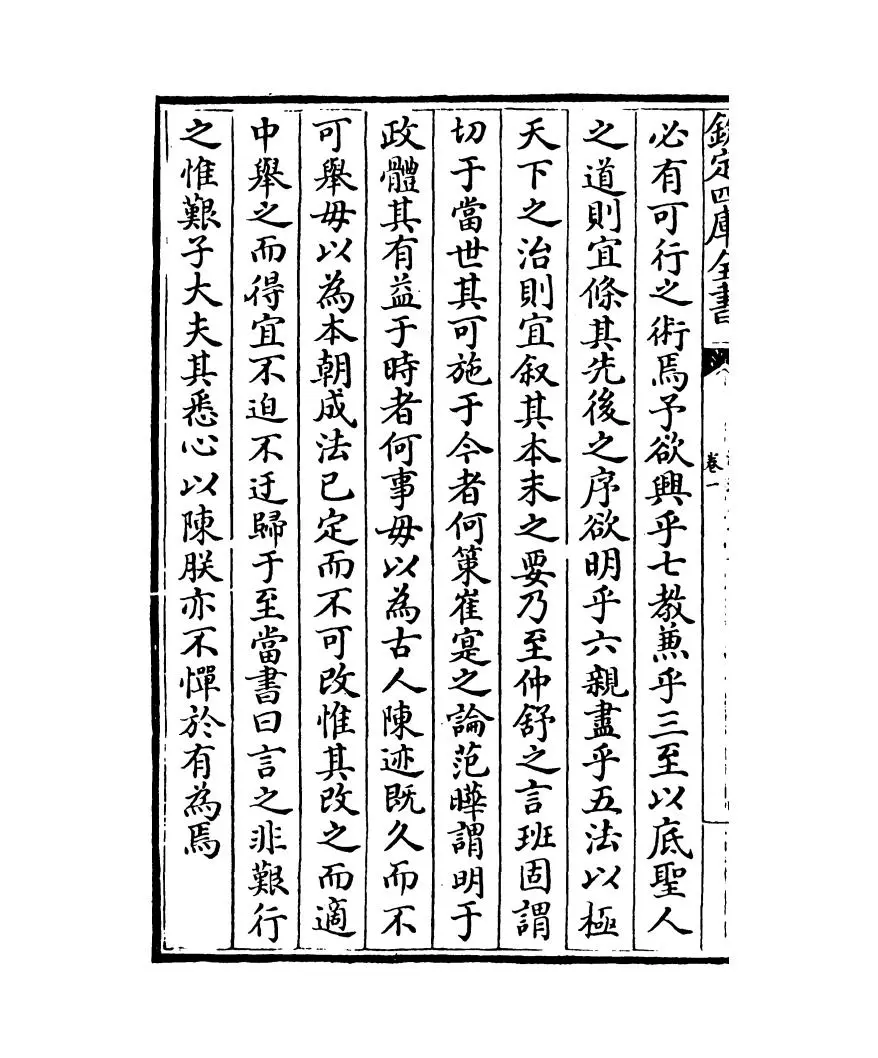 欽定四庫全書
卷一
必有可行之術焉予欲興乎七教兼乎三至以底聖人
之道則宜條其先後之序欲明乎六親盡乎五法以極
天下之治則宜叙其本末之要乃至仲舒之言班固謂
切于當世其可施于今者何策崔寔之論范曄謂明于
政體其有益于時者何事毋以為古人陳迹既久而不
可舉毋以為本朝成法已定而不可改惟其改之而適
中舉之而得宜不迫不迂歸于至當書曰言之非艱行
之惟艱子大夫其悉心以陳朕亦不憚於有為焉